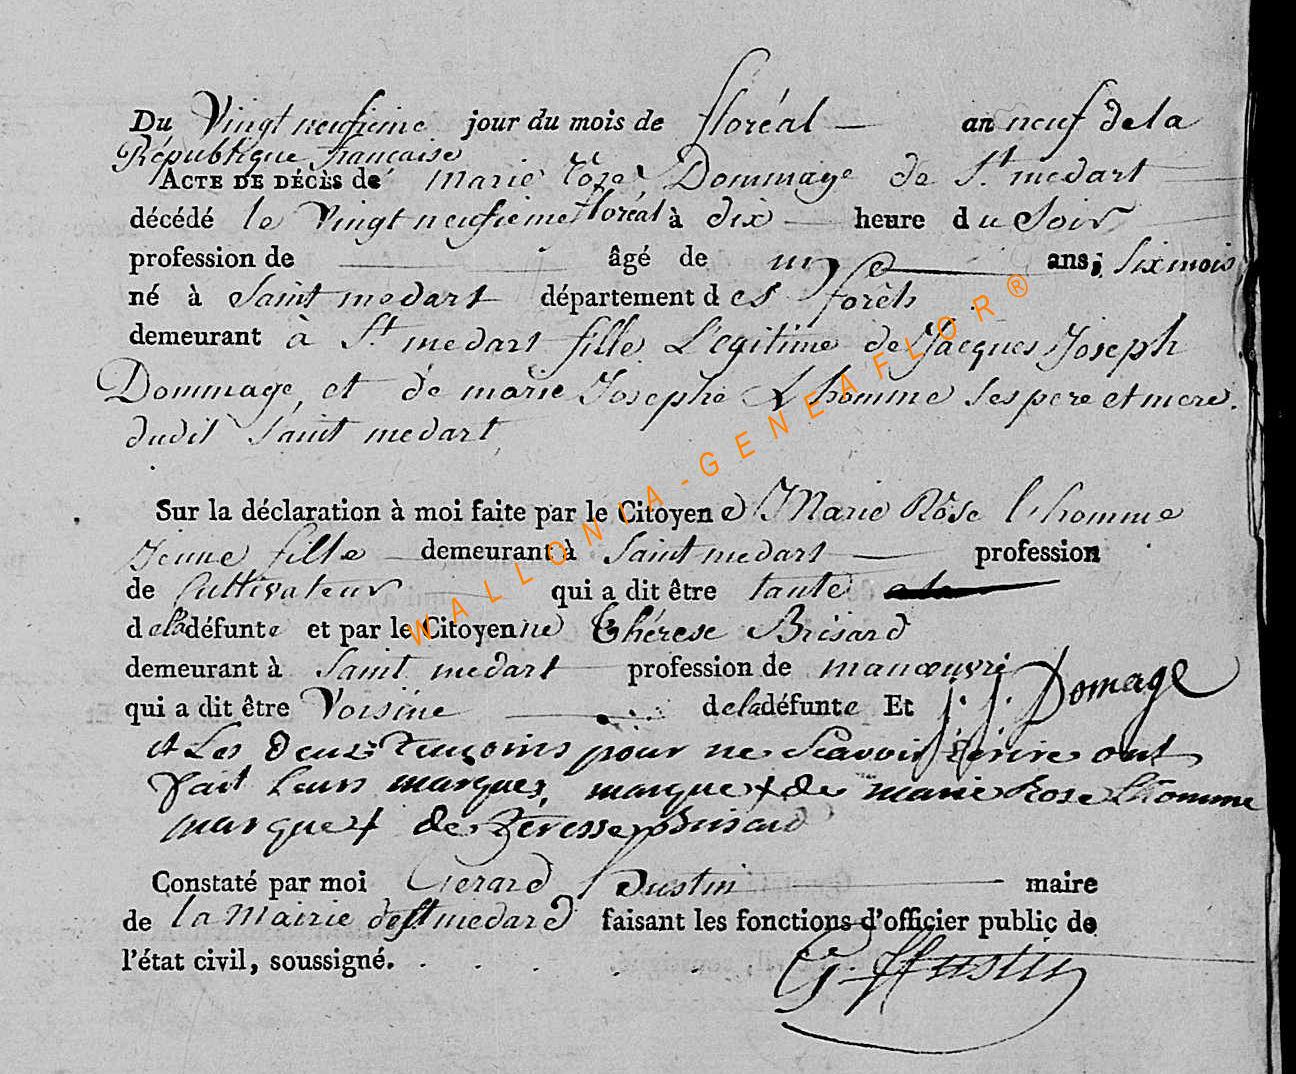 Du Vingt neufieme jour du mois de floréal — an neuf de la
République francaise
ACTE DE DÉCÈS de Marie Rose Dommage de St. medart
décédé le Vingt neufieme floréal à dix heure du Soir
profession de — âgé de un ans, Six mois
né à Saint medart département des forêts
demeurant à St. medart fille Légitime de Jacques Joseph
Dommage, et de marie Josephe Lhomme Ses pere et mere.
dudit Saint medart
Sur la déclaration à moi faite par le Citoyene Marie Rôse l'homme
Jeune fille demeurant à Saint medart — profession
de Cultivateur qui a dit être tante
de la défunte et par le Citoyenne Thérese Brisard
demeurant à Saint medart profession de manœuvre
qui a dit être Voisine — de la défunte Et J. J. Domage
et Les deux temoins pour ne Scavoir Ecrire ont
fait Leurs marques, marque + de marie Rose Lhomme
marque + de Teresse Brisard
Constaté par moi Gerard Hustin maire
de la Mairie de St medard faisant les fonctions d'officier public de
l'état civil, soussigné.
G. Hustin
WALLONIA-GENEAFLOR®